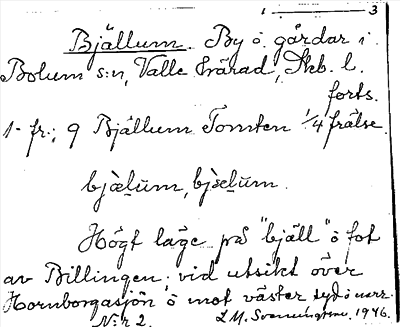 1 — 3
Bjällum. By o. gårdar i
Bolum s:n, Valle härad, Skb. l.
forts.
1- fr.; 9 Bjällum Tomten 1/4 frälse.
bjælūm, bjæēlūm.
Högt läge på "bjäll" o fot
av Billingen; vid utsikt över
Hornborgasjön o mot väster syd o norr.
N:r 2. L M. 1946.